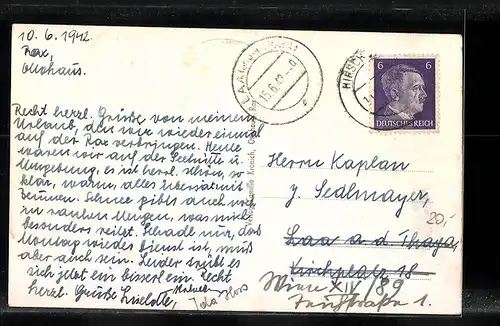 10. 6. 1942.
Rax,
Ottohaus.
Recht herzl. Grüße von meinem
Urlaub, den wir wieder einmal
auf der Rax verbringen. Heute
waren wir auf der Seehütte u.
Umgebung, es ist herrl. schön, so
klar, warm, alles übersät mit
Schnee gibts auch noch
zu rauhen Mengen, was mich
besonders reizt. Schade nur, daß
Montag wieder Dienst ist, muß
aber auch sein. Leider trübt es
sich jetzt ein bisserl ein. Recht
herzl. Grüße Liselotte,
LAA
15.6.42
HIRSCH
6 6
DEUTSCHES REICH
Herrn Kaplan
J. Sedlmayer,
20,-
Laa a. d. Thaya,
Kirchplatz 18
Wien XIV/89
1.